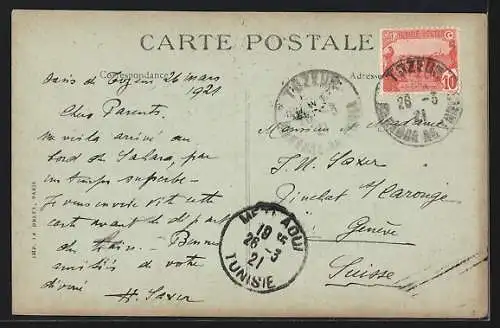 CARTE POSTALE
Correspondance
Adresse
Oasis de Tozeur 26 mars
1921
Chers Parents.
Me voilà arrivé au
bord du Sahara, par
un temps superbe.
Je vous envoie vite cette
carte avant le départ
du train. Bonnes
amitiés de votre
dévoué
H. Saxer
Monsieur et Madame
J. U. Saxer
Pinchat s/Carouge
Genève
Suisse
TOZEUR
26 - 3
21
10
METLAOUI
18
26 - 3
21
TUNISIE
IMP. P. DELEY, PARIS